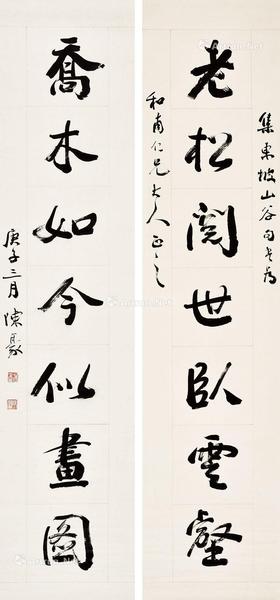 集東坡山谷句為
老松閱世臥雲壑
和甫仁兄大人正之
喬木如今似畫圖
庚子三月陳豪